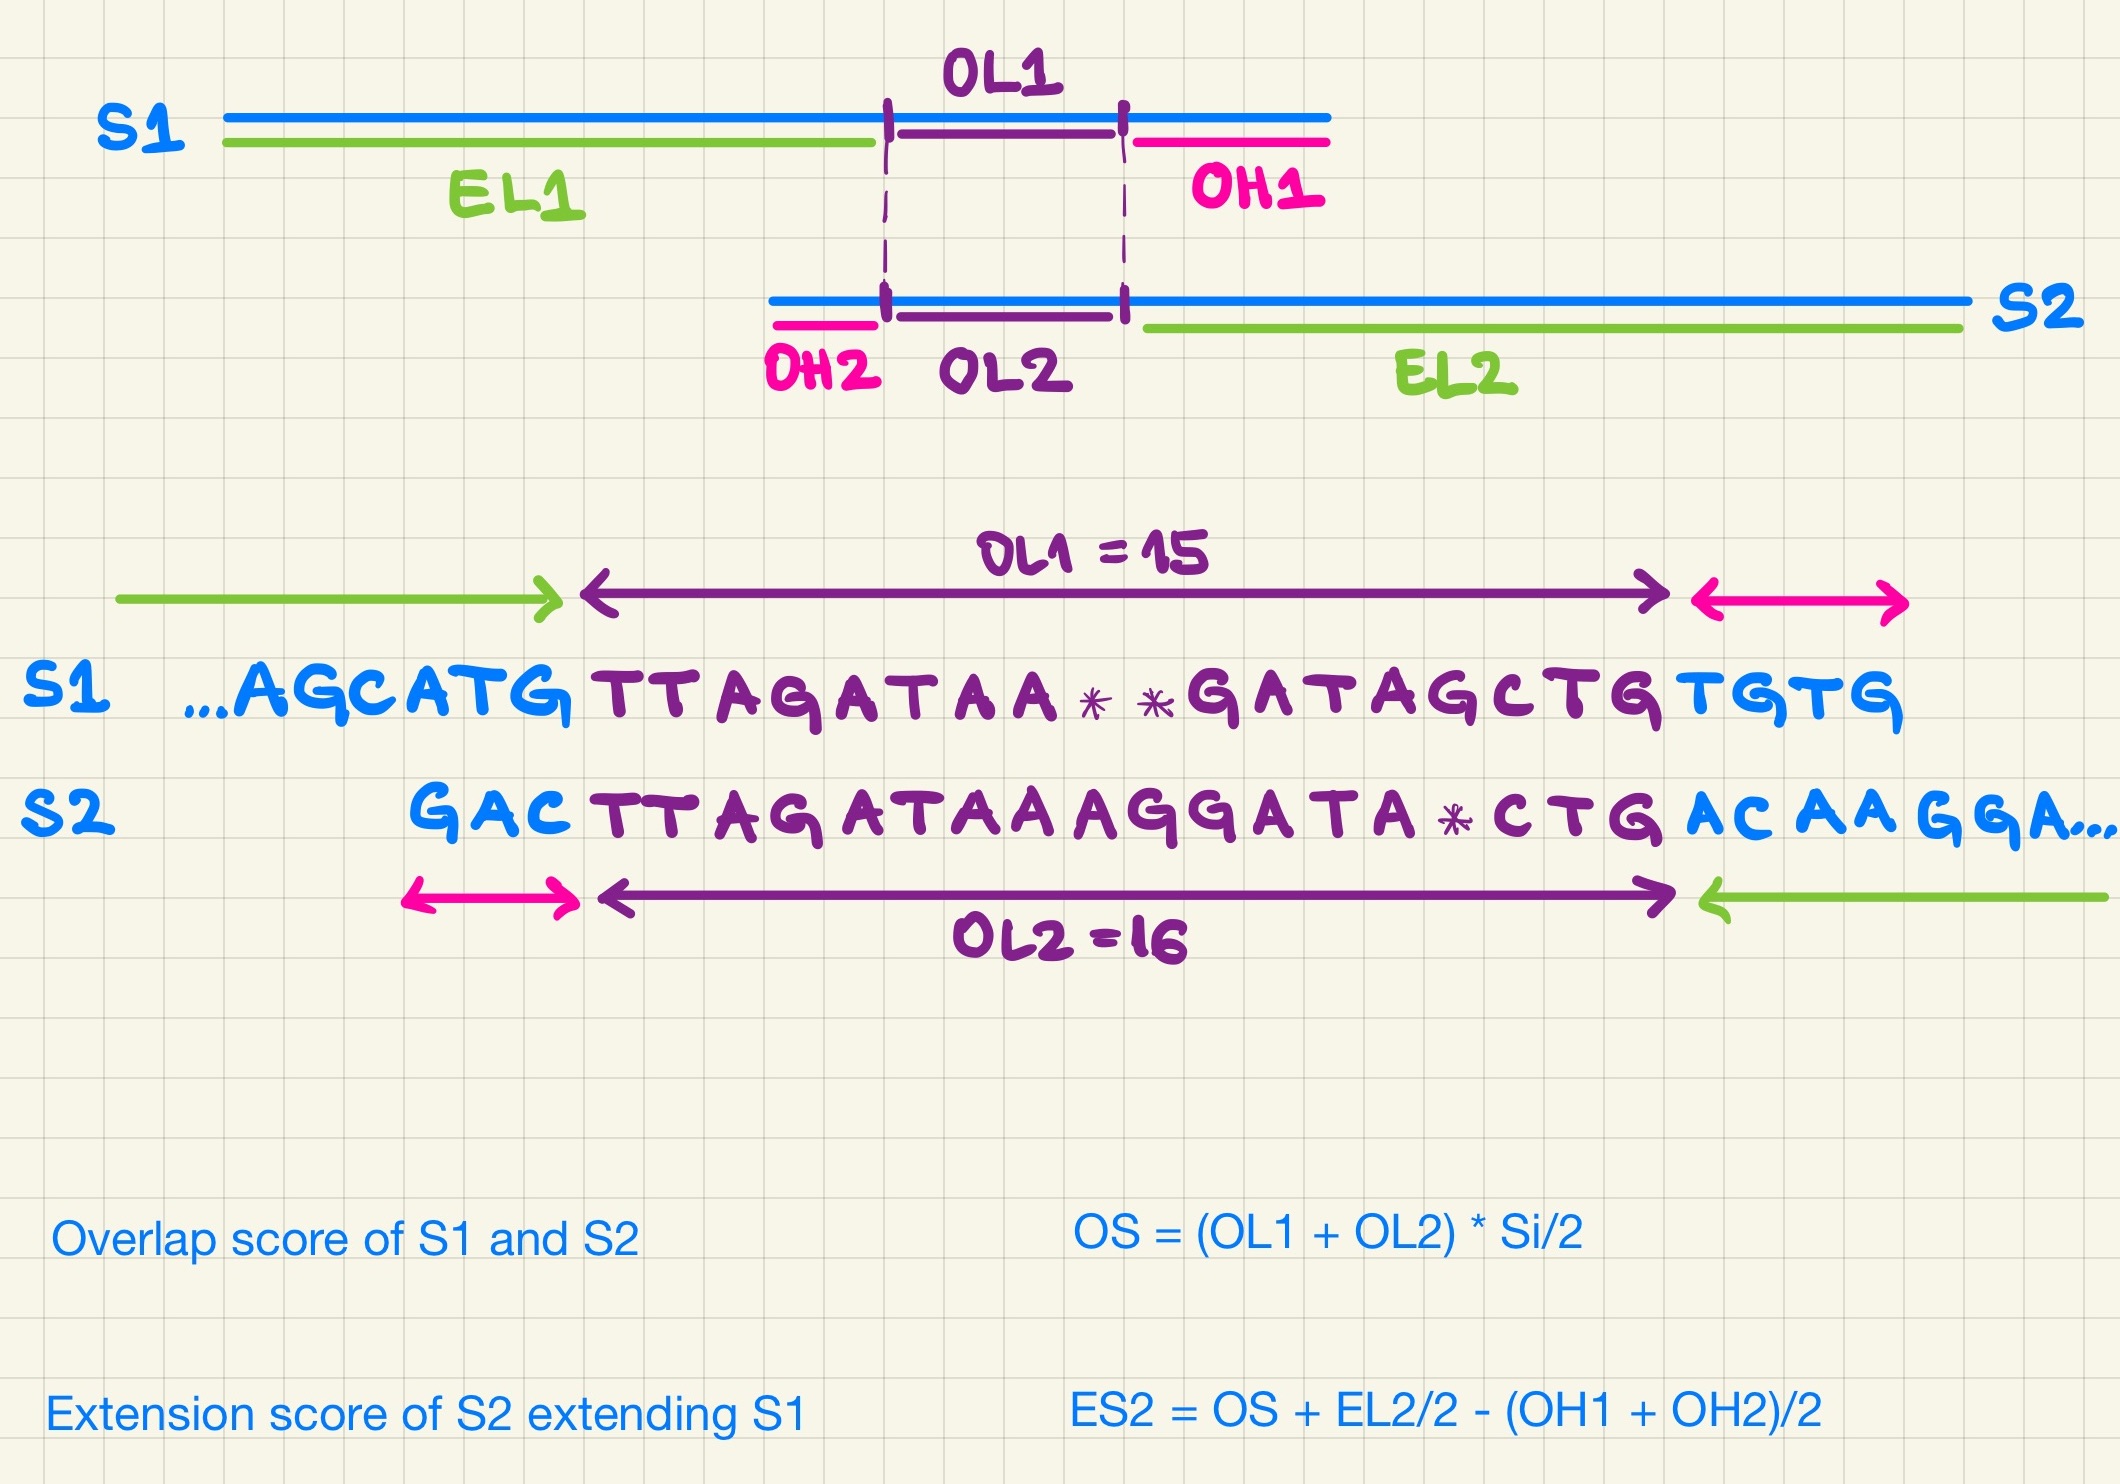 OL1
S1
EL1
OH1
S2
OH2
OL2
EL2
OL1 = 15
S1 ...AGCATGTTAGATAA**GATAGCTGTGTG
S2 GACTTAGATAAAGGATA*CTGACAAGGA...
OL2 = 16
Overlap score of S1 and S2
OS = (OL1 + OL2) * Si/2
Extension score of S2 extending S1
ES2 = OS + EL2/2 - (OH1 + OH2)/2